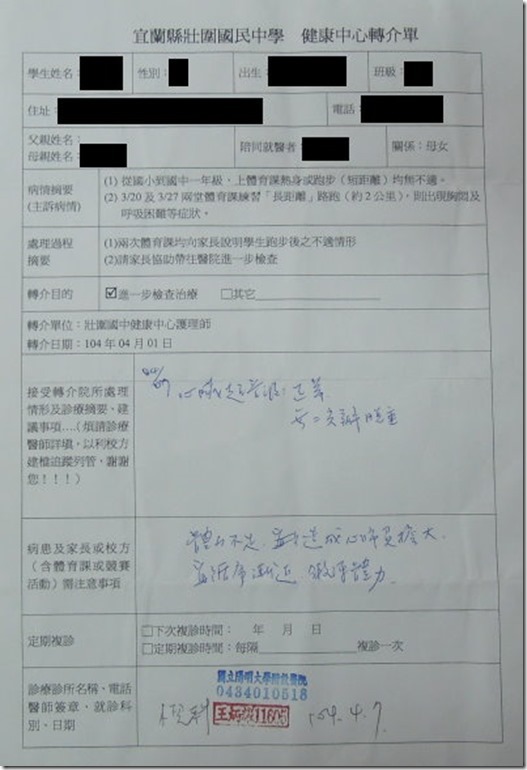 宜蘭縣壯圍國民中學 健康中心轉介單
學生姓名: 性別: 出生: 班級:
住址: 電話:
父親姓名:
母親姓名: 陪同就醫者: 關係:母女
病情摘要
(主訴病情)
(1) 從國小到國中一年級,上體育課熱身或跑步(短距離)均無不適。
(2) 3/20 及 3/27 兩堂體育課練習「長距離」路跑(約 2 公里),則出現胸悶及
呼吸困難等症狀。
處理過程
摘要
(1)兩次體育課均向家長說明學生跑步後之不適情形
(2)請家長協助帶往醫院進一步檢查
轉介目的 ☑進一步檢查治療 □其它
轉介單位:壯圍國中健康中心護理師
轉介日期:104 年 04 月 01 日
接受轉介院所處理
情形及診療摘要、建
議事項....(煩請診療
醫師詳填,以利校方
建檔追蹤列管,謝謝
您!!!)
心臟超音波:正常
無二尖瓣脫垂
病患及家長或校方
(含體育課或競賽
活動)需注意事項
體力不足,會造成心肺負擔大
宜循序漸進
體力
定期複診
□下次複診時間: 年 月 日
□定期複診時間:每隔 複診一次
診療診所名稱、電話
醫師簽章、就診科
別、日期
國立陽明大學附設醫院
0434010518
104.4.7